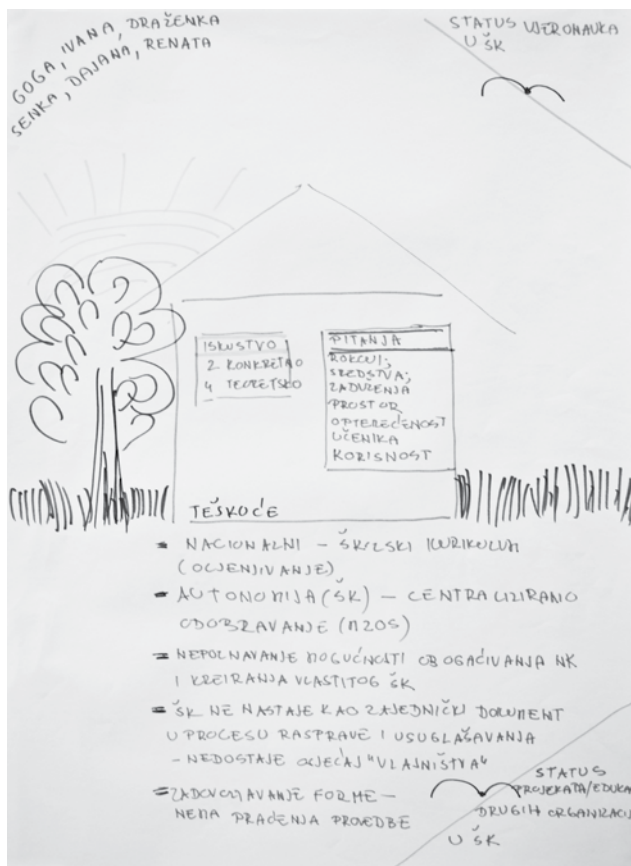 GOGA, IVANA, DRAŽENKA
SENKA, DAJANA, RENATA
STATUS VJERONAUKA
U ŠK
ISKUSTVO
2 KONKRETNO
4 TEORETSKO
PITANJA
ROKOVI;
SREDSTVA;
ZADUŽENJA
PROSTOR
OPTEREĆENOST
UČENIKA
KORISNOST
TEŠKOĆE
- NACIONALNI – ŠKOLSKI KURIKULUM
(OCJENJIVANJE)
- AUTONOMIJA (ŠK) – CENTRALIZIRANO
ODOBRAVANJE (MZOS)
- NEPOZNAVANJE MOGUĆNOSTI OBOGAĆIVANJA NK
I KREIRANJA VLASTITOG ŠK
- ŠK NE NASTAJE KAO ZAJEDNIČKI DOKUMENT
U PROCESU RASPRAVE I USUGLAŠAVANJA
- NEDOSTAJE OSJEĆAJ "VLASNIŠTVA"
- ZADOVOLJAVANJE FORME –
NEMA PRAĆENJA PROVEDBE
STATUS
PROJEKATA/EDUKA
DRUGIH ORGANIZACIJ
U ŠK